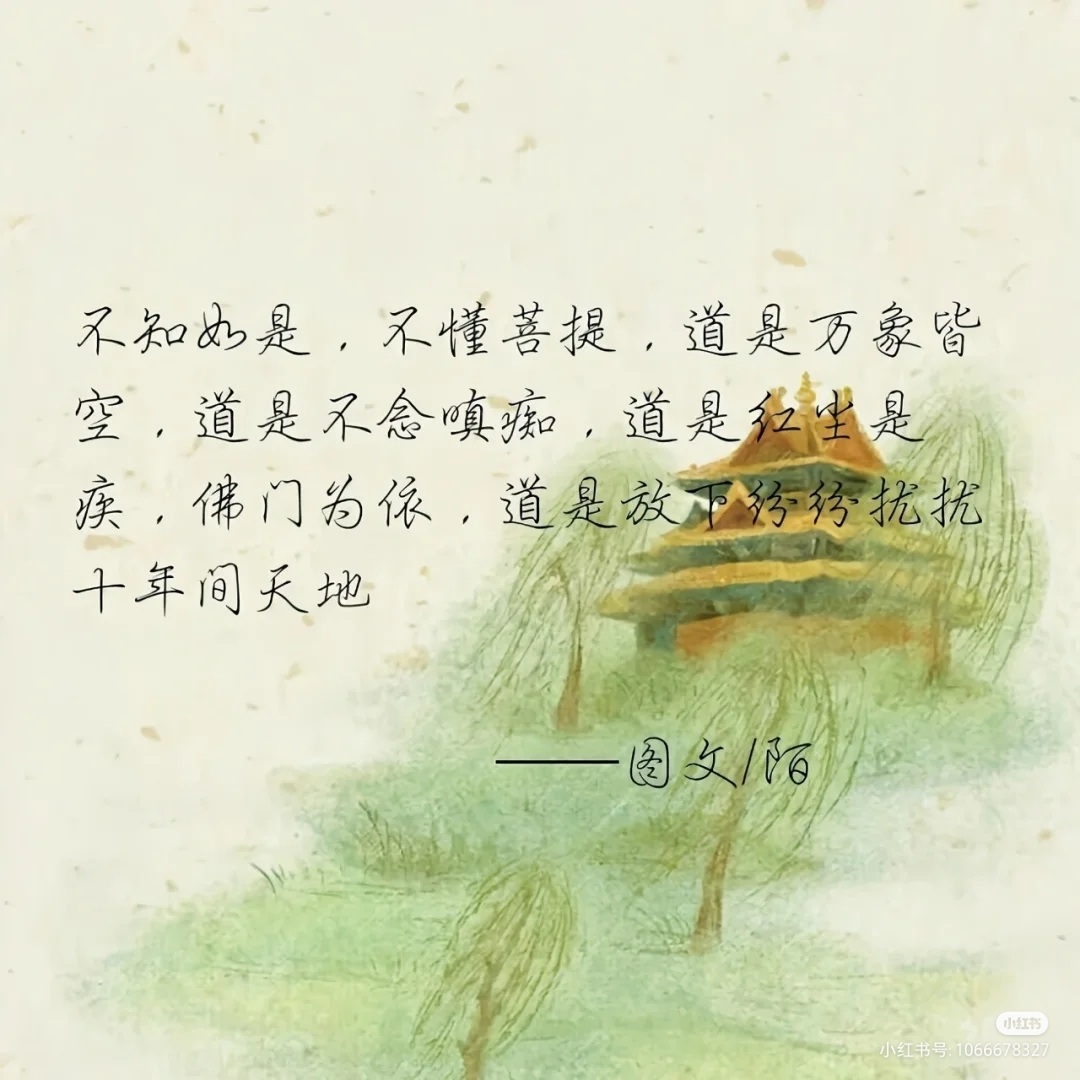 不知如是，不懂菩提，道是万象皆
空，道是不念嗔痴，道是红尘是
疾，佛门为依，道是放下纷纷扰扰
十年间天地
——图文/陌
小红书
小红书号:1066678327